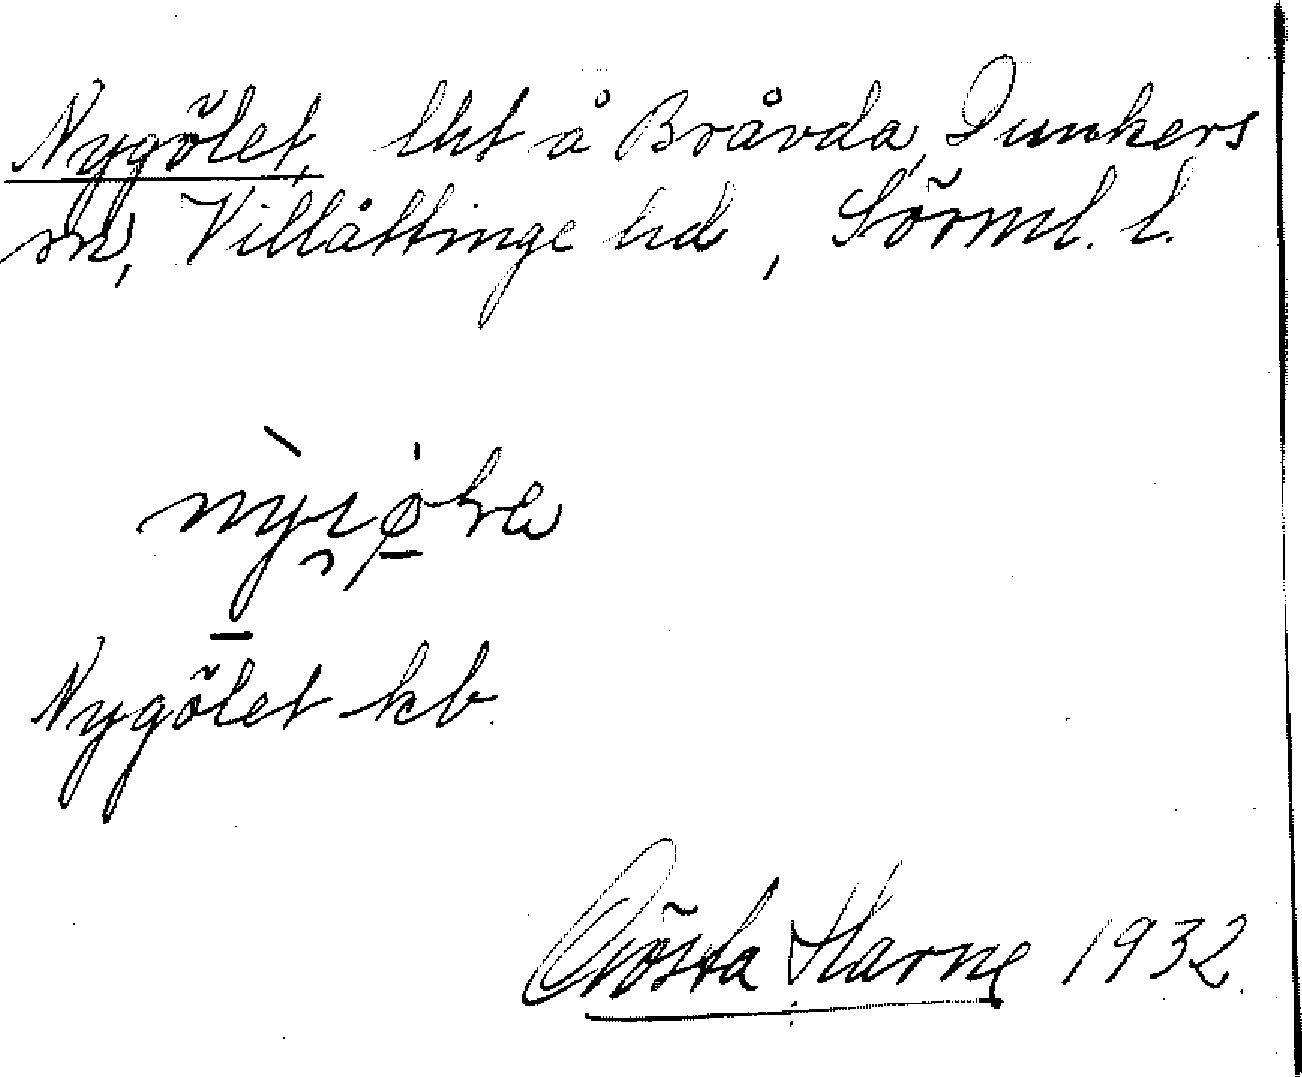 Nygölet, lht å Bråvda, Dunkers
sn, Villåttinge hd, Sörml. l.
Nygölet kb.
Gösta Harne 1932.